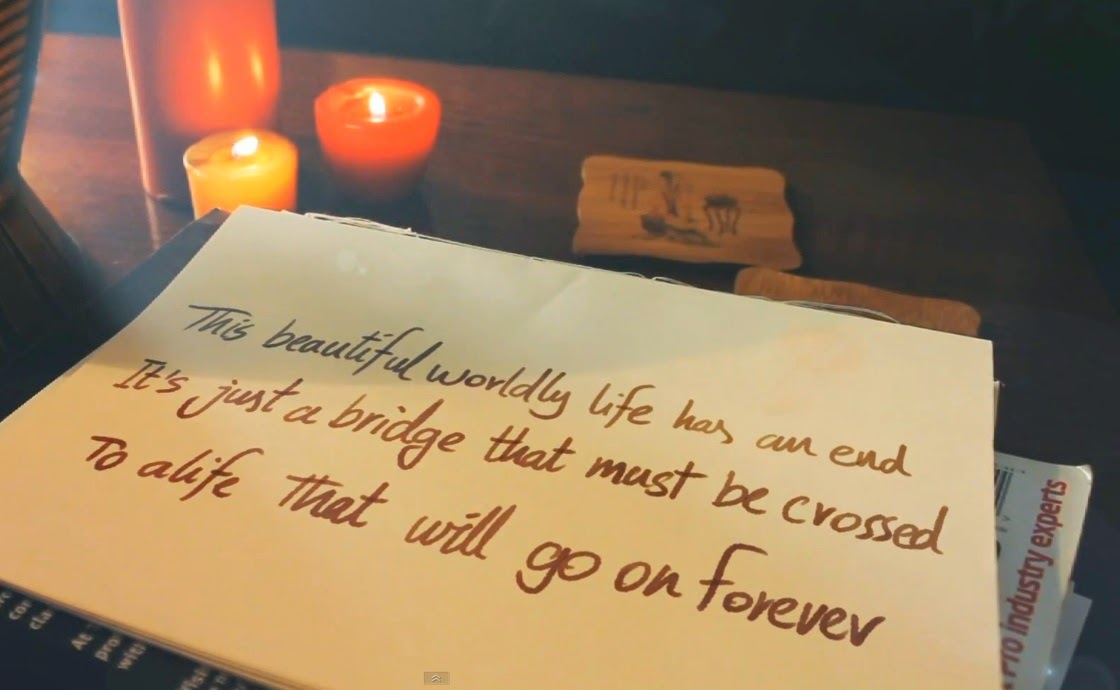 This beautiful worldly life has an end
It's just a bridge that must be crossed
To a life that will go on forever
Pro industry experts
At